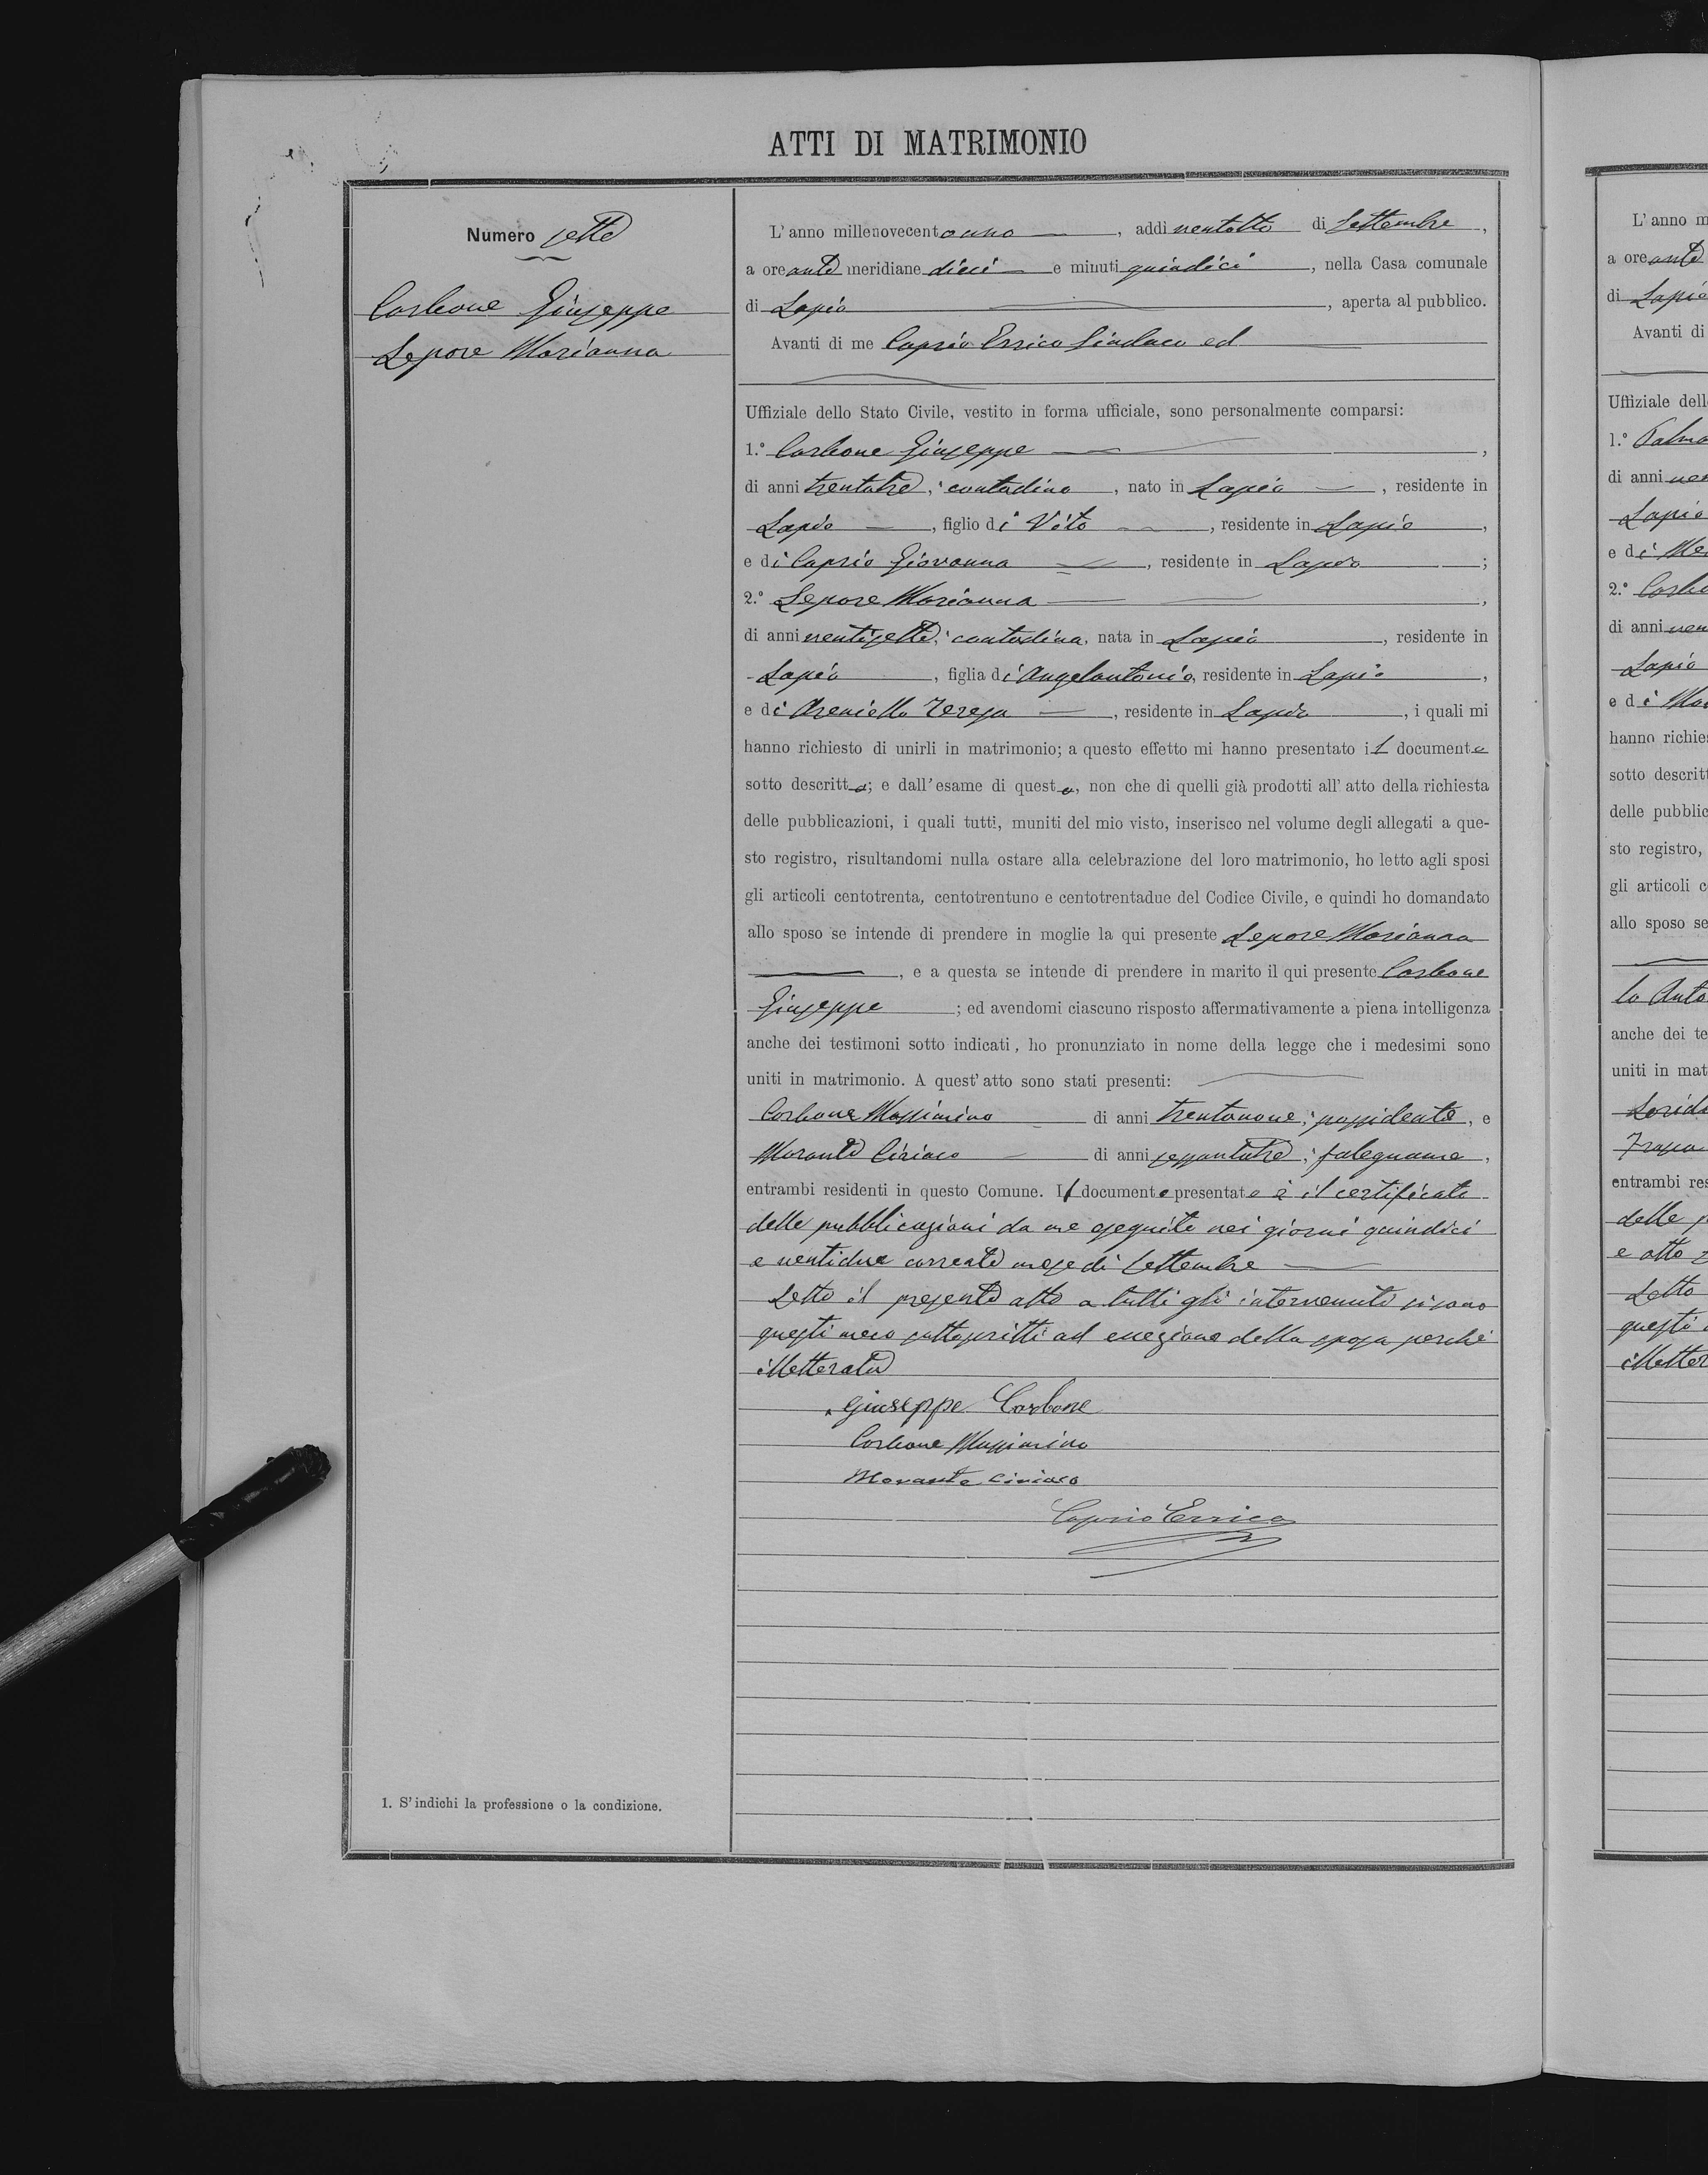 ATTI DI MATRIMONIO
Numero sette
Carbone Giuseppe
Lepore Marianna
1. S'indichi la professione o la condizione.
L'anno millenovecento uno, addì ventotto di Settembre,
a ore ante meridiane dieci e minuti quindici, nella Casa comunale
di Lapio, aperta al pubblico.
Avanti di me Caprio Errico Sindaco ed
Uffiziale dello Stato Civile, vestito in forma ufficiale, sono personalmente comparsi:
1.° Carbone Giuseppe,
di anni trentatre, contadino, nato in Lapio, residente in
Lapio, figlio di Vito, residente in Lapio,
e di Caprio Giovanna, residente in Lapio;
2.° Lepore Marianna,
di anni ventisette, contadina, nata in Lapio, residente in
Lapio, figlia di Angelantonio, residente in Lapio,
e di Areniello Teresa, residente in Lapio, i quali mi
hanno richiesto di unirli in matrimonio; a questo effetto mi hanno presentato il documento
sotto descritto; e dall'esame di questo, non che di quelli già prodotti all'atto della richiesta
delle pubblicazioni, i quali tutti, muniti del mio visto, inserisco nel volume degli allegati a que-
sto registro, risultandomi nulla ostare alla celebrazione del loro matrimonio, ho letto agli sposi
gli articoli centotrenta, centotrentuno e centotrentadue del Codice Civile, e quindi ho domandato
allo sposo se intende di prendere in moglie la qui presente Lepore Marianna
, e a questa se intende di prendere in marito il qui presente Carbone
Giuseppe; ed avendomi ciascuno risposto affermativamente a piena intelligenza
anche dei testimoni sotto indicati, ho pronunziato in nome della legge che i medesimi sono
uniti in matrimonio. A quest'atto sono stati presenti:
Carbone Massimino di anni trentanove, possidente, e
Morante Ciriaco di anni sessantatre, falegname,
entrambi residenti in questo Comune. Il documento presentato è il certificato
delle pubblicazioni da me eseguite nei giorni quindici
e ventidue corrente mese di Settembre
Letto il presente atto a tutti gli intervenuti si sono
questi meco sottoscritti ad eccezione della sposa perché
illetterata
Giuseppe Carbone
Carbone Massimino
Morante Ciriaco
Caprio Errico
L'anno m
a ore ante
di Lapio
Avanti di
Uffiziale dell
1.° Palma
di anni ven
Lapio
e di Me
2.° Carbo
di anni ven
Lapio
e di Mor
hanno richies
sotto descritt
delle pubblic
sto registro,
gli articoli c
allo sposo se
lo Anto
anche dei te
uniti in mat
entrambi res
delle p
e otto
Letto
questi
illetter